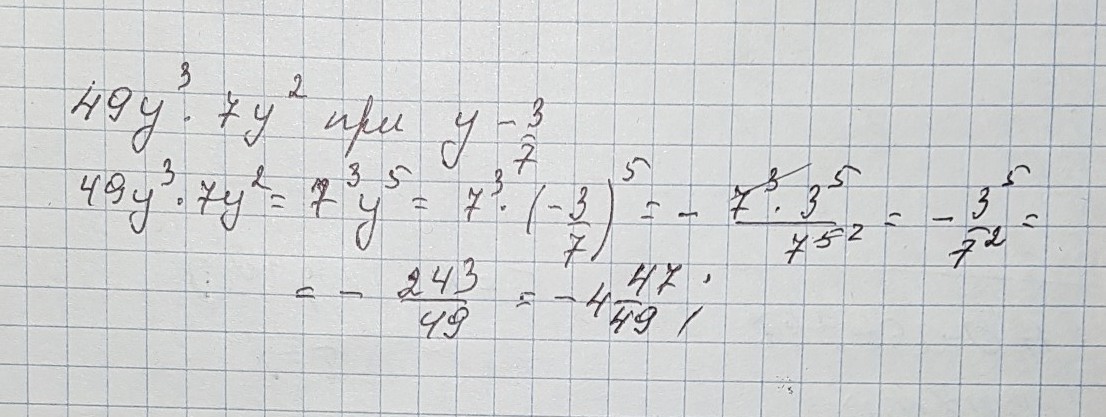 49y³ · 7y² при y - 3/7
49y³ · 7y² = 7³y⁵ = 7³ · (-3/7)⁵ = - 7³ · 3⁵/7⁵ ² = - 3⁵/7² =
= - 243/49 = - 4 47/49 ;